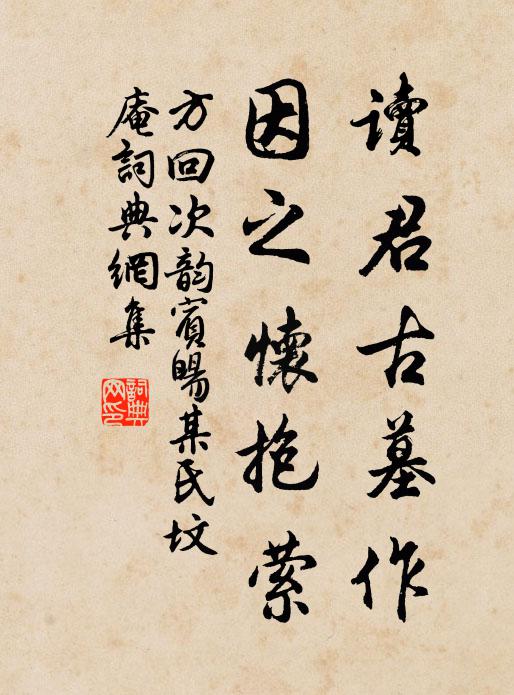 讀君古墓作
因之懷抱縈
方回次韵賓暘某氏墳
庵詞典網集
詞典網印